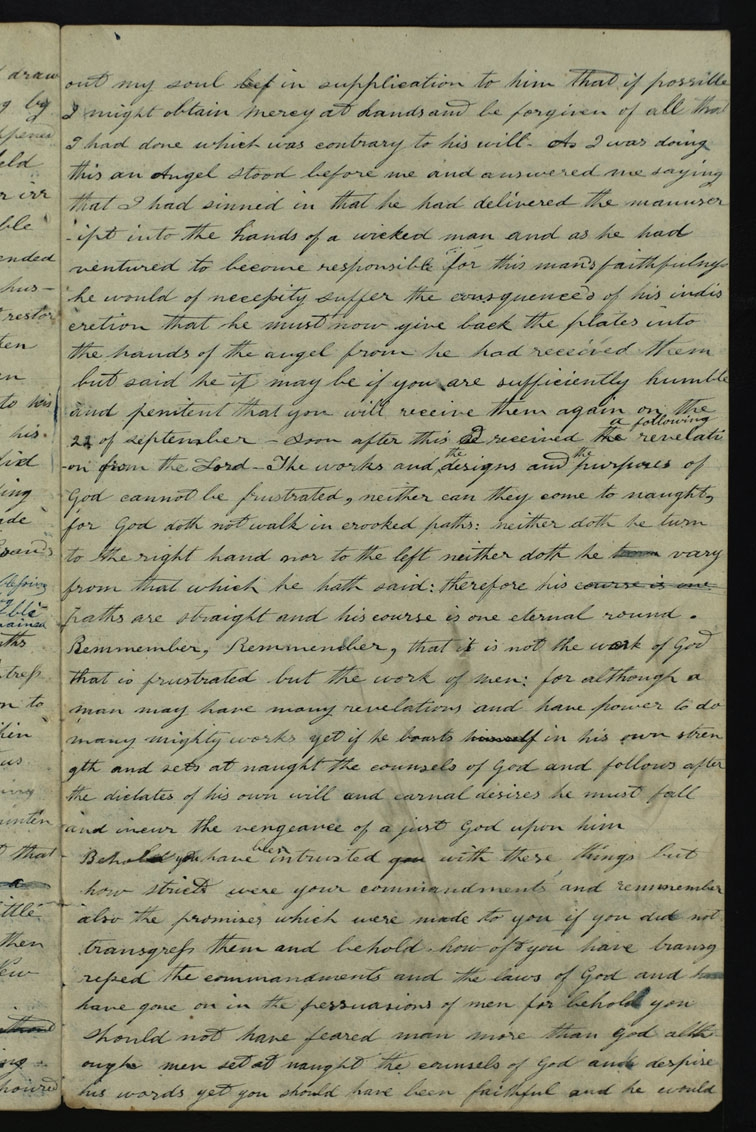 out my soul in supplication to him that if possible
I might obtain mercy at hands and be forgiven of all that
I had done which was contrary to his will. As I was doing
this an Angel stood before me and answered me saying
that I had sinned in that he had delivered the manuscr
-ipt into the hands of a wicked man and as he had
ventured to become responsible for this mans faithfulness
he would of necessity suffer the consquences of his indis
cretion that he must now give back the plates into
the hands of the angel from he had received them
but said he it may be if you are sufficiently humble
and penitent that you will receive them again on the
a following
22 of september - Soon after this received the revelati
-on from the Lord - The works and the designs and the purposes of
God cannot be frustrated, neither can they come to naught,
for God doth not walk in crooked paths: neither doth he turn
to the right hand nor to the left neither doth he vary
from that which he hath said: therefore his course is one
paths are straight and his course is one eternal round.
Remmember, Remmember, that it is not the work of God
that is frustrated but the work of men: for although a
man may have many revelations and have power to do
many mighty works yet if he boasts himself in his own stren
gth and sets at naught the counsels of God and follows after
the dictates of his own will and carnal desires he must fall
and incur the vengeance of a just God upon him
Behold you have been intrusted you with these things but
how strict were your commandments and remmember
also the promises which were made to you if you did not
transgress them and behold how oft you have transg
ressed the commandments and the laws of God and
have gone on in the perssuasions of men for behold you
should not have feared man more than God alth
ough men set at naught the counsels of God and despise
his words yet you should have been faithful and he would
draw
by
eld
ble
ended
restor
to his
his
did
ding
ade
Grand
on to
that
then
New